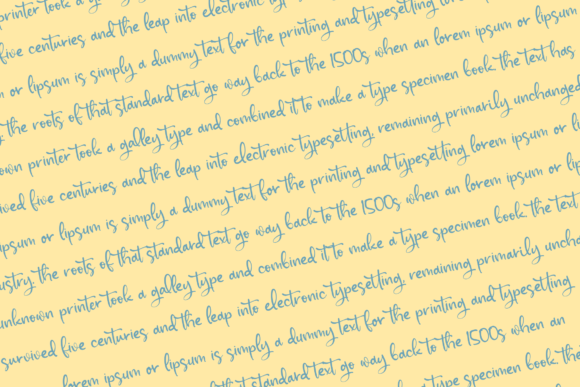 printer took a
five centuries and the leap into electronic
or lipsum is simply a dummy text for the printing and typesetting
the roots of that standard text go way back to the 1500s when an lorem ipsum or lipsum
printer took a galley type and combined it to make a type specimen book the text has
five centuries and the leap into electronic typesetting, remaining primarily unchanged
ipsum or lipsum is simply a dummy text for the printing and typesetting lorem ipsum or
the roots of that standard text go way back to the 1500s when an lorem ipsum or
unknown printer took a galley type and combined it to make a type specimen book the text
survived five centuries and the leap into electronic typesetting, remaining primarily
lorem ipsum or lipsum is simply a dummy text for the printing and typesetting
the roots of that standard text go way back to the 1500s when an
type and combined it to make a type specimen book the